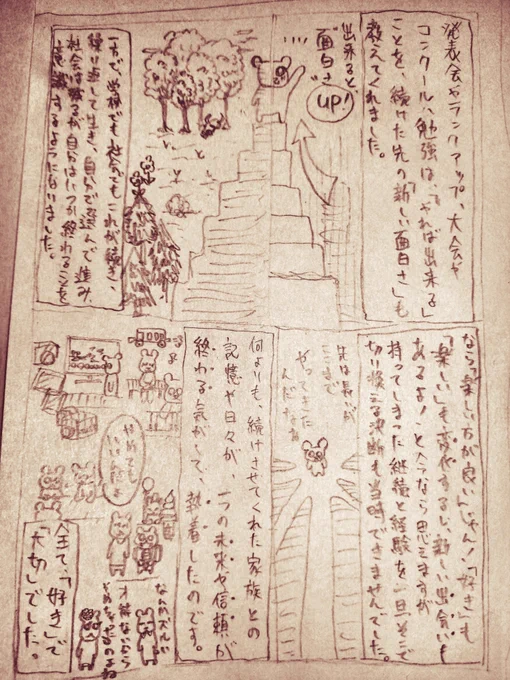 発表会やランクアップ、大会や
コンクール、勉強は、「やれば出来る」
ことを、続けた先の「新しい面白さ」も
教えてくれました。
出来ると
面白さ
UP!
一方で、学校でも社会でもこれが続き、
繰り返して生き、自分で選んで進み、
社会は廻るが自分はいつか終わることを
意識するようになりました。
なら、「楽しい方が良いじゃん!「好き」も
「楽しい」も変化するし、新しい出会いも
あるよ!」と今なら思えますが
持ってしまった継続と経験を一旦そこで
切り捨てる決断も当時できませんでした。
先は長いが
ここまで
やってきた
んだよなぁ
何よりも、続けさせてくれた家族との
記憶や日々が、一つの未来や信頼が
終わる気がして、執着したのです。
やめても
いいんだよ
なんかズルい
才能ないなら
全て、「好き」で
大切でした。